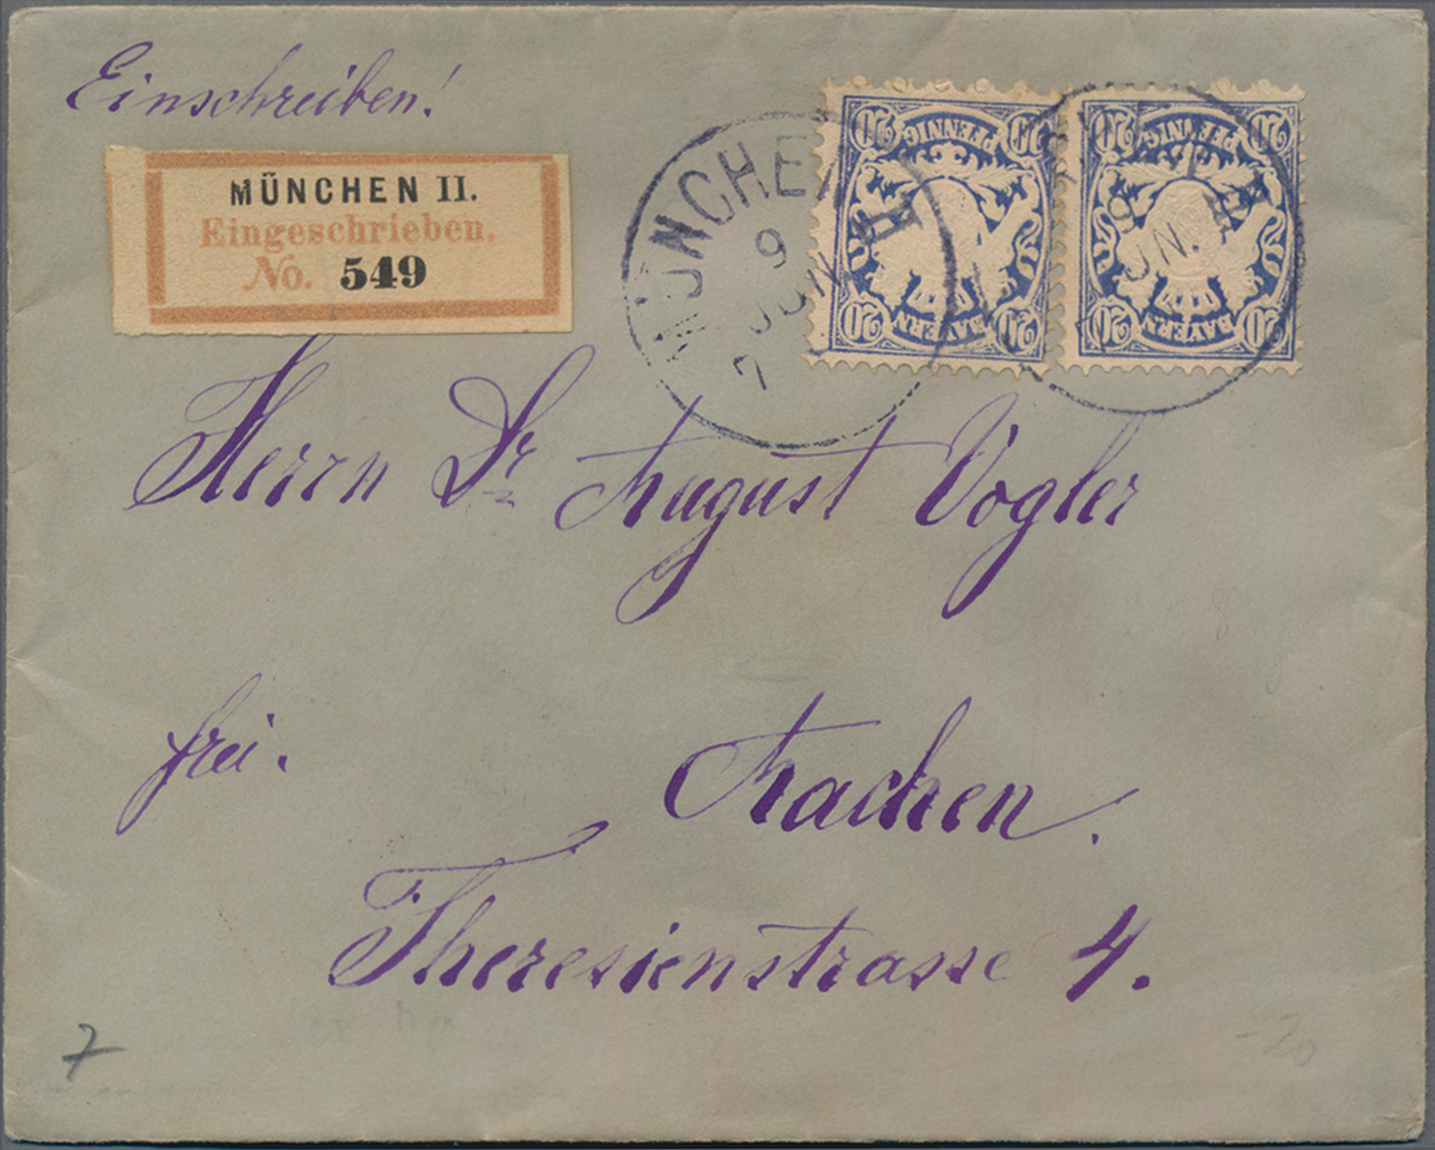 Einschreiben!
MÜNCHEN II.
Eingeschrieben.
No. 549
MÜNCHEN II
9
JUN
7
20 PFENNIG 20
20 BAYERN 20
20 PFENNIG 20
20 BAYERN 20
9
JUN.
Herrn Dr August Vogler
frei.
Aachen.
Theresienstrasse 4.
7